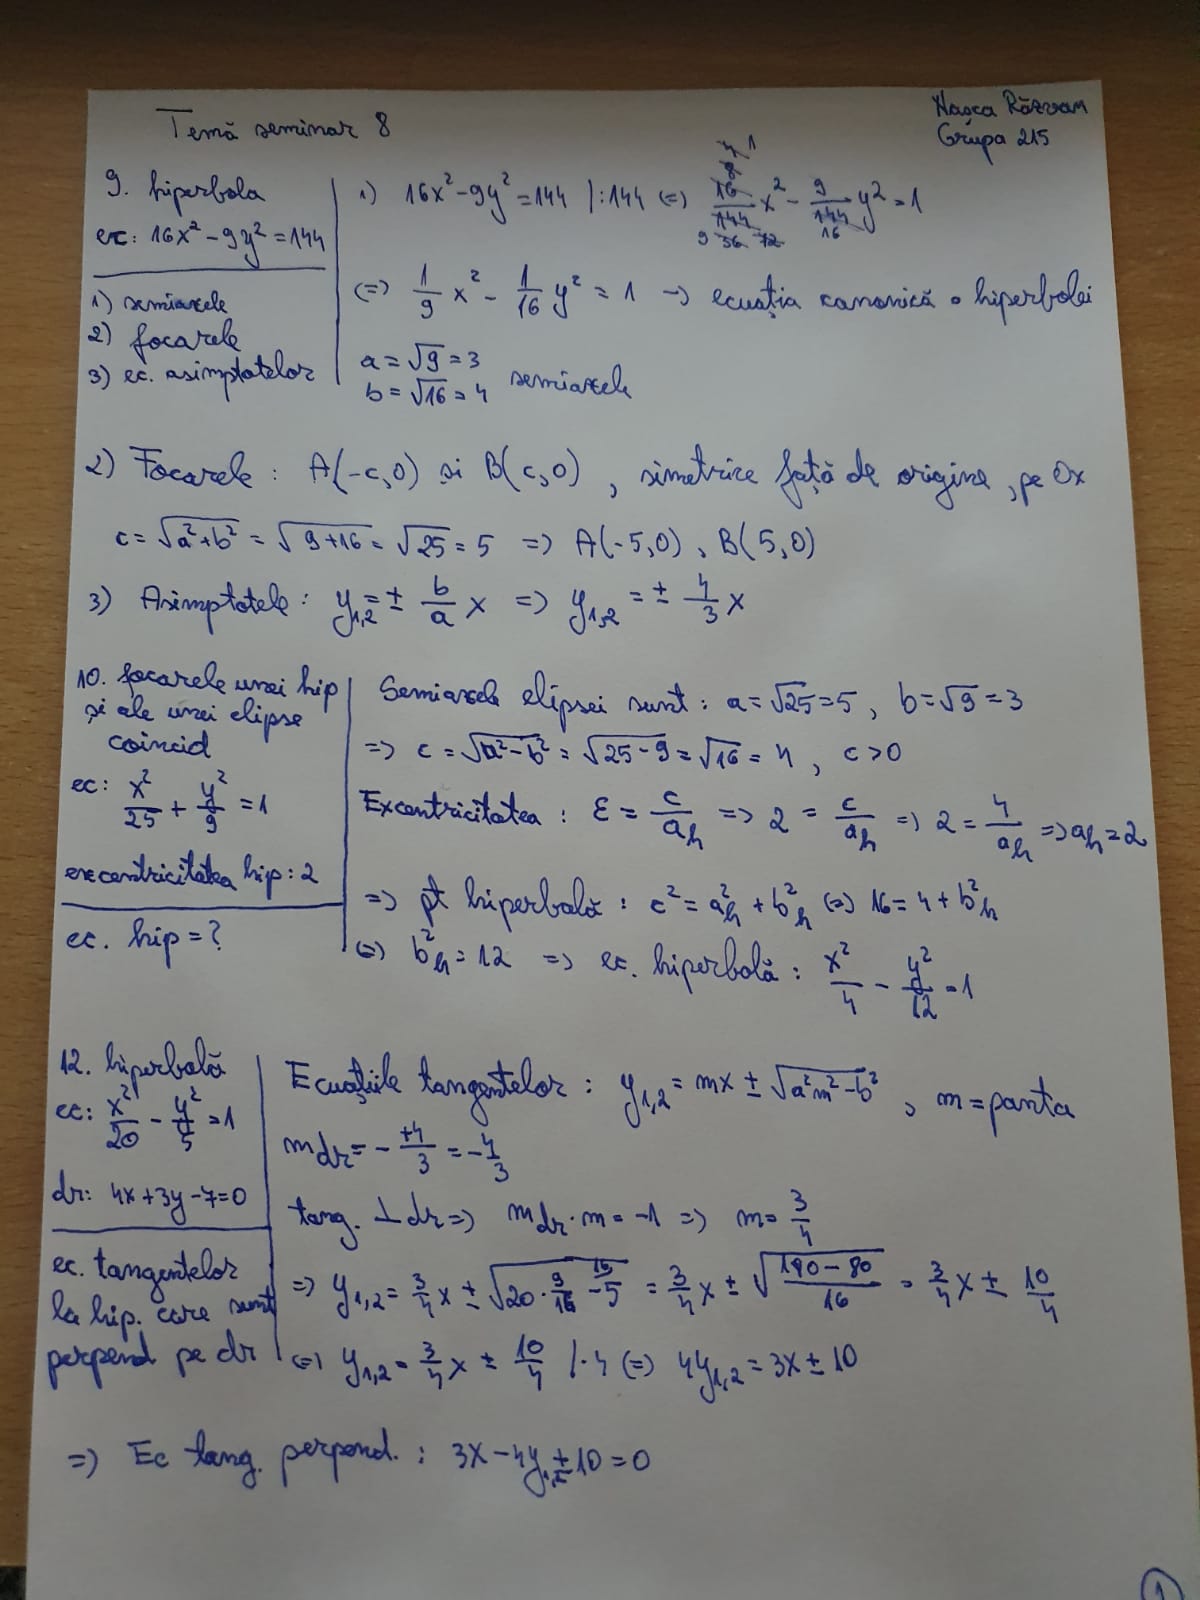 Temă seminar 8
Hașca Răzvan
Grupa 215
9. hiperbola
ec: 16x² - 9y² = 144
1) semiaxele
2) focarele
3) ec. asimptotelor
1) 16x² - 9y² = 144 |:144 (=) 16/144 x² - 9/144 y² = 1
(=) 1/9 x² - 1/16 y² = 1 → ecuația canonică a hiperbolei
a = √9 = 3
b = √16 = 4 semiaxele
2) Focarele : A(-c,0) și B(c,0) , simetrice față de origine, pe Ox
c = √a²+b² = √9+16 = √25 = 5 => A(-5,0) , B(5,0)
3) Asimptotele : y1,2 = ± b/a x => y1,2 = ± 4/3 x
10. focarele unei hip
și ale unei elipse
coincid
ec: x²/25 + y²/9 = 1
excentricitatea hip: 2
ec. hip = ?
Semiaxele elipsei sunt : a = √25 = 5 , b = √9 = 3
=> c = √a²-b² = √25-9 = √16 = 4 , c > 0
Excentricitatea : ε = c/ah => 2 = c/ah => 2 = 4/ah => ah = 2
=> pt hiperbolă : c² = a²h + b²h (=) 16 = 4 + b²h
(=) b²h = 12 => ec. hiperbolă : x²/4 - y²/12 = 1
12. hiperbolă
ec: x²/20 - y²/5 = 1
dr: 4x+3y-7=0
ec. tangentelor
la hip. care sunt
perpend pe dr
Ecuațiile tangentelor : y1,2 = mx ± √a²m²-b² , m = panta
mdr = - +4/3 = -4/3
tang. ⊥ dr => mdr · m = -1 => m = 3/4
=> y1,2 = 3/4 x ± √20 · 9/16 - 16) 5 = 3/4 x ± √180-80/16 = 3/4 x ± 10/4
(=) y1,2 = 3/4 x ± 10/4 |·4 (=) 4y1,2 = 3x ± 10
=) Ec tang. perpend. : 3x - 4y1,2 ± 10 = 0
1